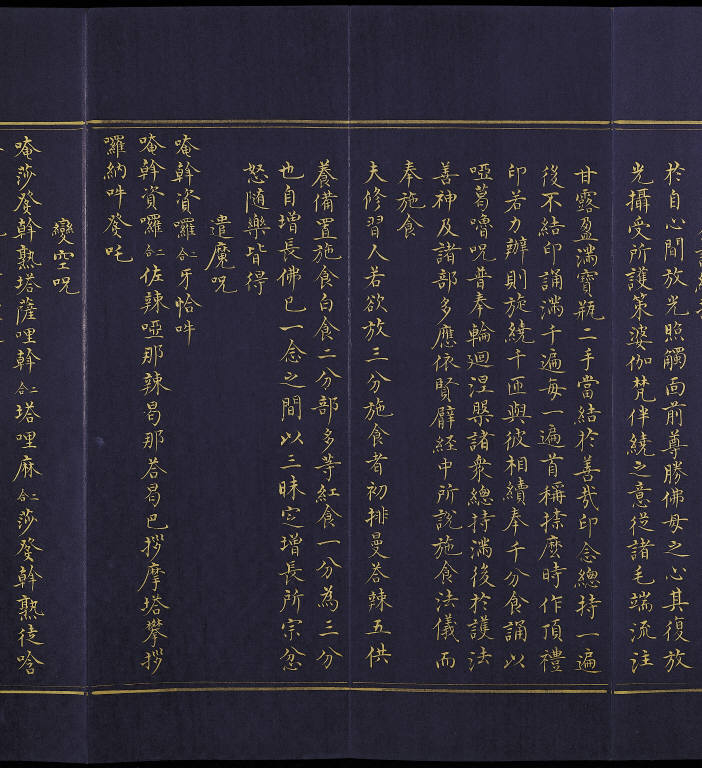 於自心間放光照觸面前尊勝佛母之心其復放
光攝受所護策婆伽梵伴繞之意從諸毛端流注
甘露盈滿寶瓶二手當結於善哉印念總持一遍
後不結印誦滿千遍每一遍首稱捺麼時作頂禮
印若力辦則旋繞千匝與彼相續奉千分食誦以
啞葛嚕呪普奉輪廻涅槃諸衆總持滿後於護法
善神及諸部多應依賢劈經中所說施食法儀而
奉施食
夫修習人若欲放三分施食者初排曼荅辣五供
養備置施食白食二分部多等紅食一分為三分
也自增長佛已一念之間以三昧定增長所宗忿
怒随樂皆得
遣魔呪
唵斡資囉二合牙恰吽
唵斡資囉二合佐辣啞那辣曷那荅曷巴拶摩塔攀拶
囉納吽發吒
變空呪
唵莎發斡熟塔薩哩斡二合塔哩麻二合莎發斡熟徒唅